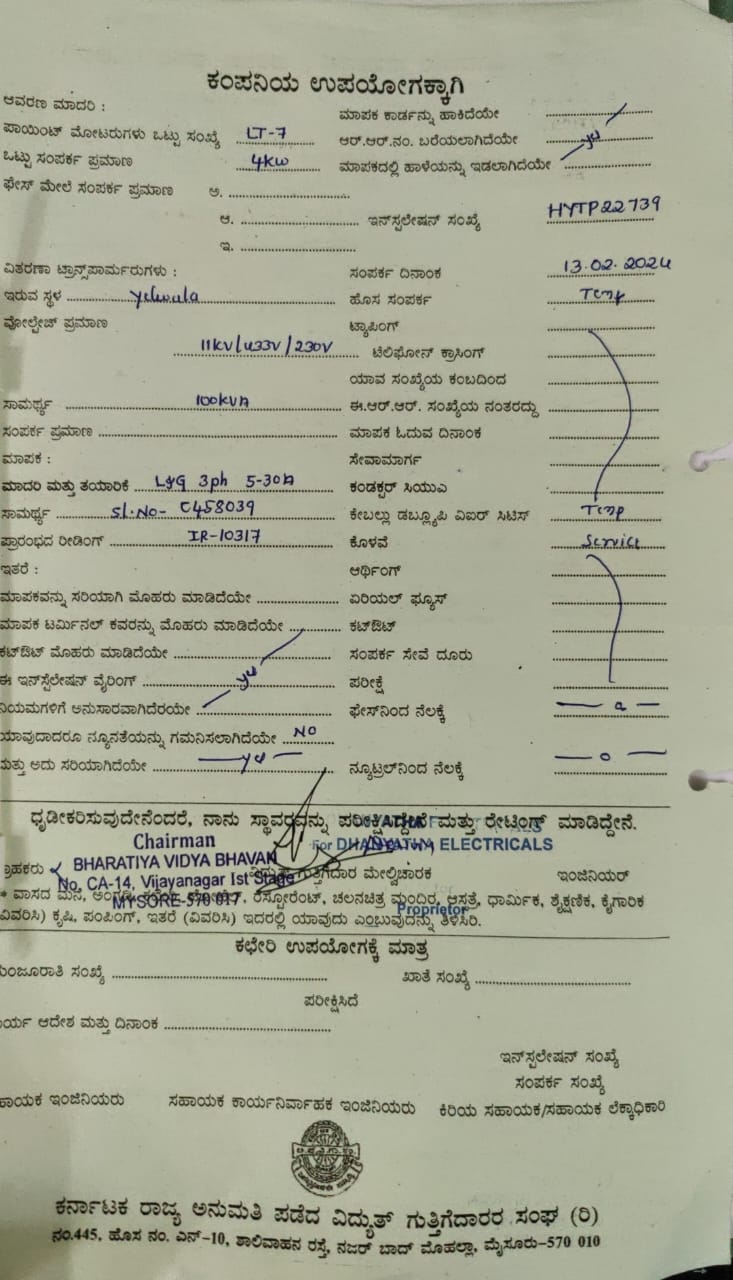 ಕಂಪನಿಯ ಉಪಯೋಗಕ್ಕಾಗಿ
ಆವರಣ ಮಾದರಿ : ಮಾಪಕ ಕಾರ್ಡನ್ನು ಹಾಕಿದೆಯೇ
ಪಾಯಿಂಟ್ ಮೋಟರುಗಳು ಒಟ್ಟು ಸಂಖ್ಯೆ LT-7 ಆರ್.ಆರ್.ನಂ. ಬರೆಯಲಾಗಿದೆಯೇ yes
ಒಟ್ಟು ಸಂಪರ್ಕ ಪ್ರಮಾಣ 4KW ಮಾಪಕದಲ್ಲಿ ಹಾಳೆಯನ್ನು ಇಡಲಾಗಿದೆಯೇ
ಫೇಸ್ ಮೇಲೆ ಸಂಪರ್ಕ ಪ್ರಮಾಣ ಅ.
ಆ. ಇನ್‌ಸ್ಟಲೇಷನ್ ಸಂಖ್ಯೆ HYTP22739
ಇ.
ವಿತರಣಾ ಟ್ರಾನ್ಸ್‌ಫಾರ್ಮರುಗಳು : ಸಂಪರ್ಕ ದಿನಾಂಕ 13.02.2024
ಇರುವ ಸ್ಥಳ ಹೊಸ ಸಂಪರ್ಕ Temp
ವೋಲ್ಟೇಜ್ ಪ್ರಮಾಣ ಟ್ಯಾಪಿಂಗ್
11KV/433V/230V ಟೆಲಿಫೋನ್ ಕ್ರಾಸಿಂಗ್
ಯಾವ ಸಂಖ್ಯೆಯ ಕಂಬದಿಂದ
ಸಾಮರ್ಥ್ಯ 100KVA ಈ.ಆರ್.ಆರ್. ಸಂಖ್ಯೆಯ ನಂತರದ್ದು
ಸಂಪರ್ಕ ಪ್ರಮಾಣ ಮಾಪಕ ಓದುವ ದಿನಾಂಕ
ಮಾಪಕ : ಸೇವಾಮಾರ್ಗ
ಮಾದರಿ ಮತ್ತು ತಯಾರಿಕೆ L&G 3ph 5-30A ಕಂಡಕ್ಟರ್ ಸಿಯುಎ
ಸಾಮರ್ಥ್ಯ Sl.No- C458039 ಕೇಬಲ್ಲು ಡಬ್ಲ್ಯೂಪಿ ವಿಐರ್ ಸಿಟಿಸ್ Temp
ಪ್ರಾರಂಭದ ರೀಡಿಂಗ್ IR-10317 ಕೊಳವೆ Service
ಇತರೆ : ಅರ್ಥಿಂಗ್
ಮಾಪಕವನ್ನು ಸರಿಯಾಗಿ ಮೊಹರು ಮಾಡಿದೆಯೇ ಏರಿಯಲ್ ಫ್ಯೂಸ್
ಮಾಪಕ ಟರ್ಮಿನಲ್ ಕವರನ್ನು ಮೊಹರು ಮಾಡಿದೆಯೇ ಕಟ್‌ಔಟ್
ಕಟ್‌ಔಟ್ ಮೊಹರು ಮಾಡಿದೆಯೇ ಸಂಪರ್ಕ ಸೇವೆ ದೂರು
ಈ ಇನ್‌ಸ್ಟೆಲೇಷನ್ ವೈರಿಂಗ್ yes ಪರೀಕ್ಷೆ
ನಿಯಮಗಳಿಗೆ ಅನುಸಾರವಾಗಿದೆರಯೇ ಫೇಸ್‌ನಿಂದ ನೆಲಕ್ಕೆ
ಯಾವುದಾದರೂ ನ್ಯೂನತೆಯನ್ನು ಗಮನಿಸಲಾಗಿದೆಯೇ NO
ಮತ್ತು ಅದು ಸರಿಯಾಗಿದೆಯೇ yes ನ್ಯೂಟ್ರಲ್‌ನಿಂದ ನೆಲಕ್ಕೆ
ಧೃಡೀಕರಿಸುವುದೇನೆಂದರೆ, ನಾನು ಸ್ಥಾವರವನ್ನು ಪರೀಕ್ಷಿಸಿದ್ದೇನೆ ಮತ್ತು ರೇಟಿಂಗ್ ಮಾಡಿದ್ದೇನೆ.
Chairman For DHANYATHA ELECTRICALS
ಗ್ರಾಹಕರು BHARATIYA VIDYA BHAVAN ಗುತ್ತಿಗೆದಾರ ಮೇಲ್ವಿಚಾರಕ ಇಂಜಿನಿಯರ್
No. CA-14, Vijayanagar Ist Stage
MYSORE-570 017
* ವಾಸದ ಮನೆ, ರೆಸ್ಟೋರೆಂಟ್, ಚಲನಚಿತ್ರ ಮಂದಿರ, ಆಸ್ಪತ್ರೆ, ಧಾರ್ಮಿಕ, ಶೈಕ್ಷಣಿಕ, ಕೈಗಾರಿಕ
Proprietor
(ವಿವರಿಸಿ) ಕೃಷಿ, ಪಂಪಿಂಗ್, ಇತರೆ (ವಿವರಿಸಿ) ಇದರಲ್ಲಿ ಯಾವುದು ಎಂಬುವುದನ್ನು ತಿಳಿಸಿರಿ.
ಕಛೇರಿ ಉಪಯೋಗಕ್ಕೆ ಮಾತ್ರ
ಮಂಜೂರಾತಿ ಸಂಖ್ಯೆ ಖಾತೆ ಸಂಖ್ಯೆ
ಪರೀಕ್ಷಿಸಿದೆ
ಕಾರ್ಯ ಆದೇಶ ಮತ್ತು ದಿನಾಂಕ
ಇನ್‌ಸ್ಟಲೇಷನ್ ಸಂಖ್ಯೆ
ಸಂಪರ್ಕ ಸಂಖ್ಯೆ
ಸಹಾಯಕ ಇಂಜಿನಿಯರು ಸಹಾಯಕ ಕಾರ್ಯನಿರ್ವಾಹಕ ಇಂಜಿನಿಯರು ಕಿರಿಯ ಸಹಾಯಕ/ಸಹಾಯಕ ಲೆಕ್ಕಾಧಿಕಾರಿ
ಕರ್ನಾಟಕ ರಾಜ್ಯ ಅನುಮತಿ ಪಡೆದ ವಿದ್ಯುತ್ ಗುತ್ತಿಗೆದಾರರ ಸಂಘ (ರಿ)
ನಂ.445, ಹೊಸ ನಂ. ಎನ್-10, ಶಾಲಿವಾಹನ ರಸ್ತೆ, ನಜರ್ ಬಾದ್ ಮೊಹಲ್ಲಾ, ಮೈಸೂರು-570 010